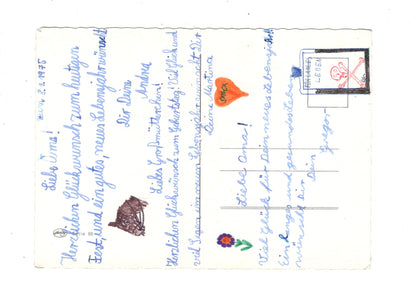 Wien 2.2.1975
Liebe Oma!
Herzlichen Glückwunsch zum heutigen
Fest, und ein gutes, neues Lebensjahr wünscht
Dir Deine
Andrea
Liebes Großmütterchen!
Herzlichen Glückwunsch zum Geburtstag! Viel Glück und
viel Segen im neuen Lebensjahr wünscht Dir
Deine Martina
OMA
Liebe Oma!
Viel Glück für Dein neues Lebensjahr
Ein langes und gesundes Leben
wünscht dir Dein
Gregor
LEBEN